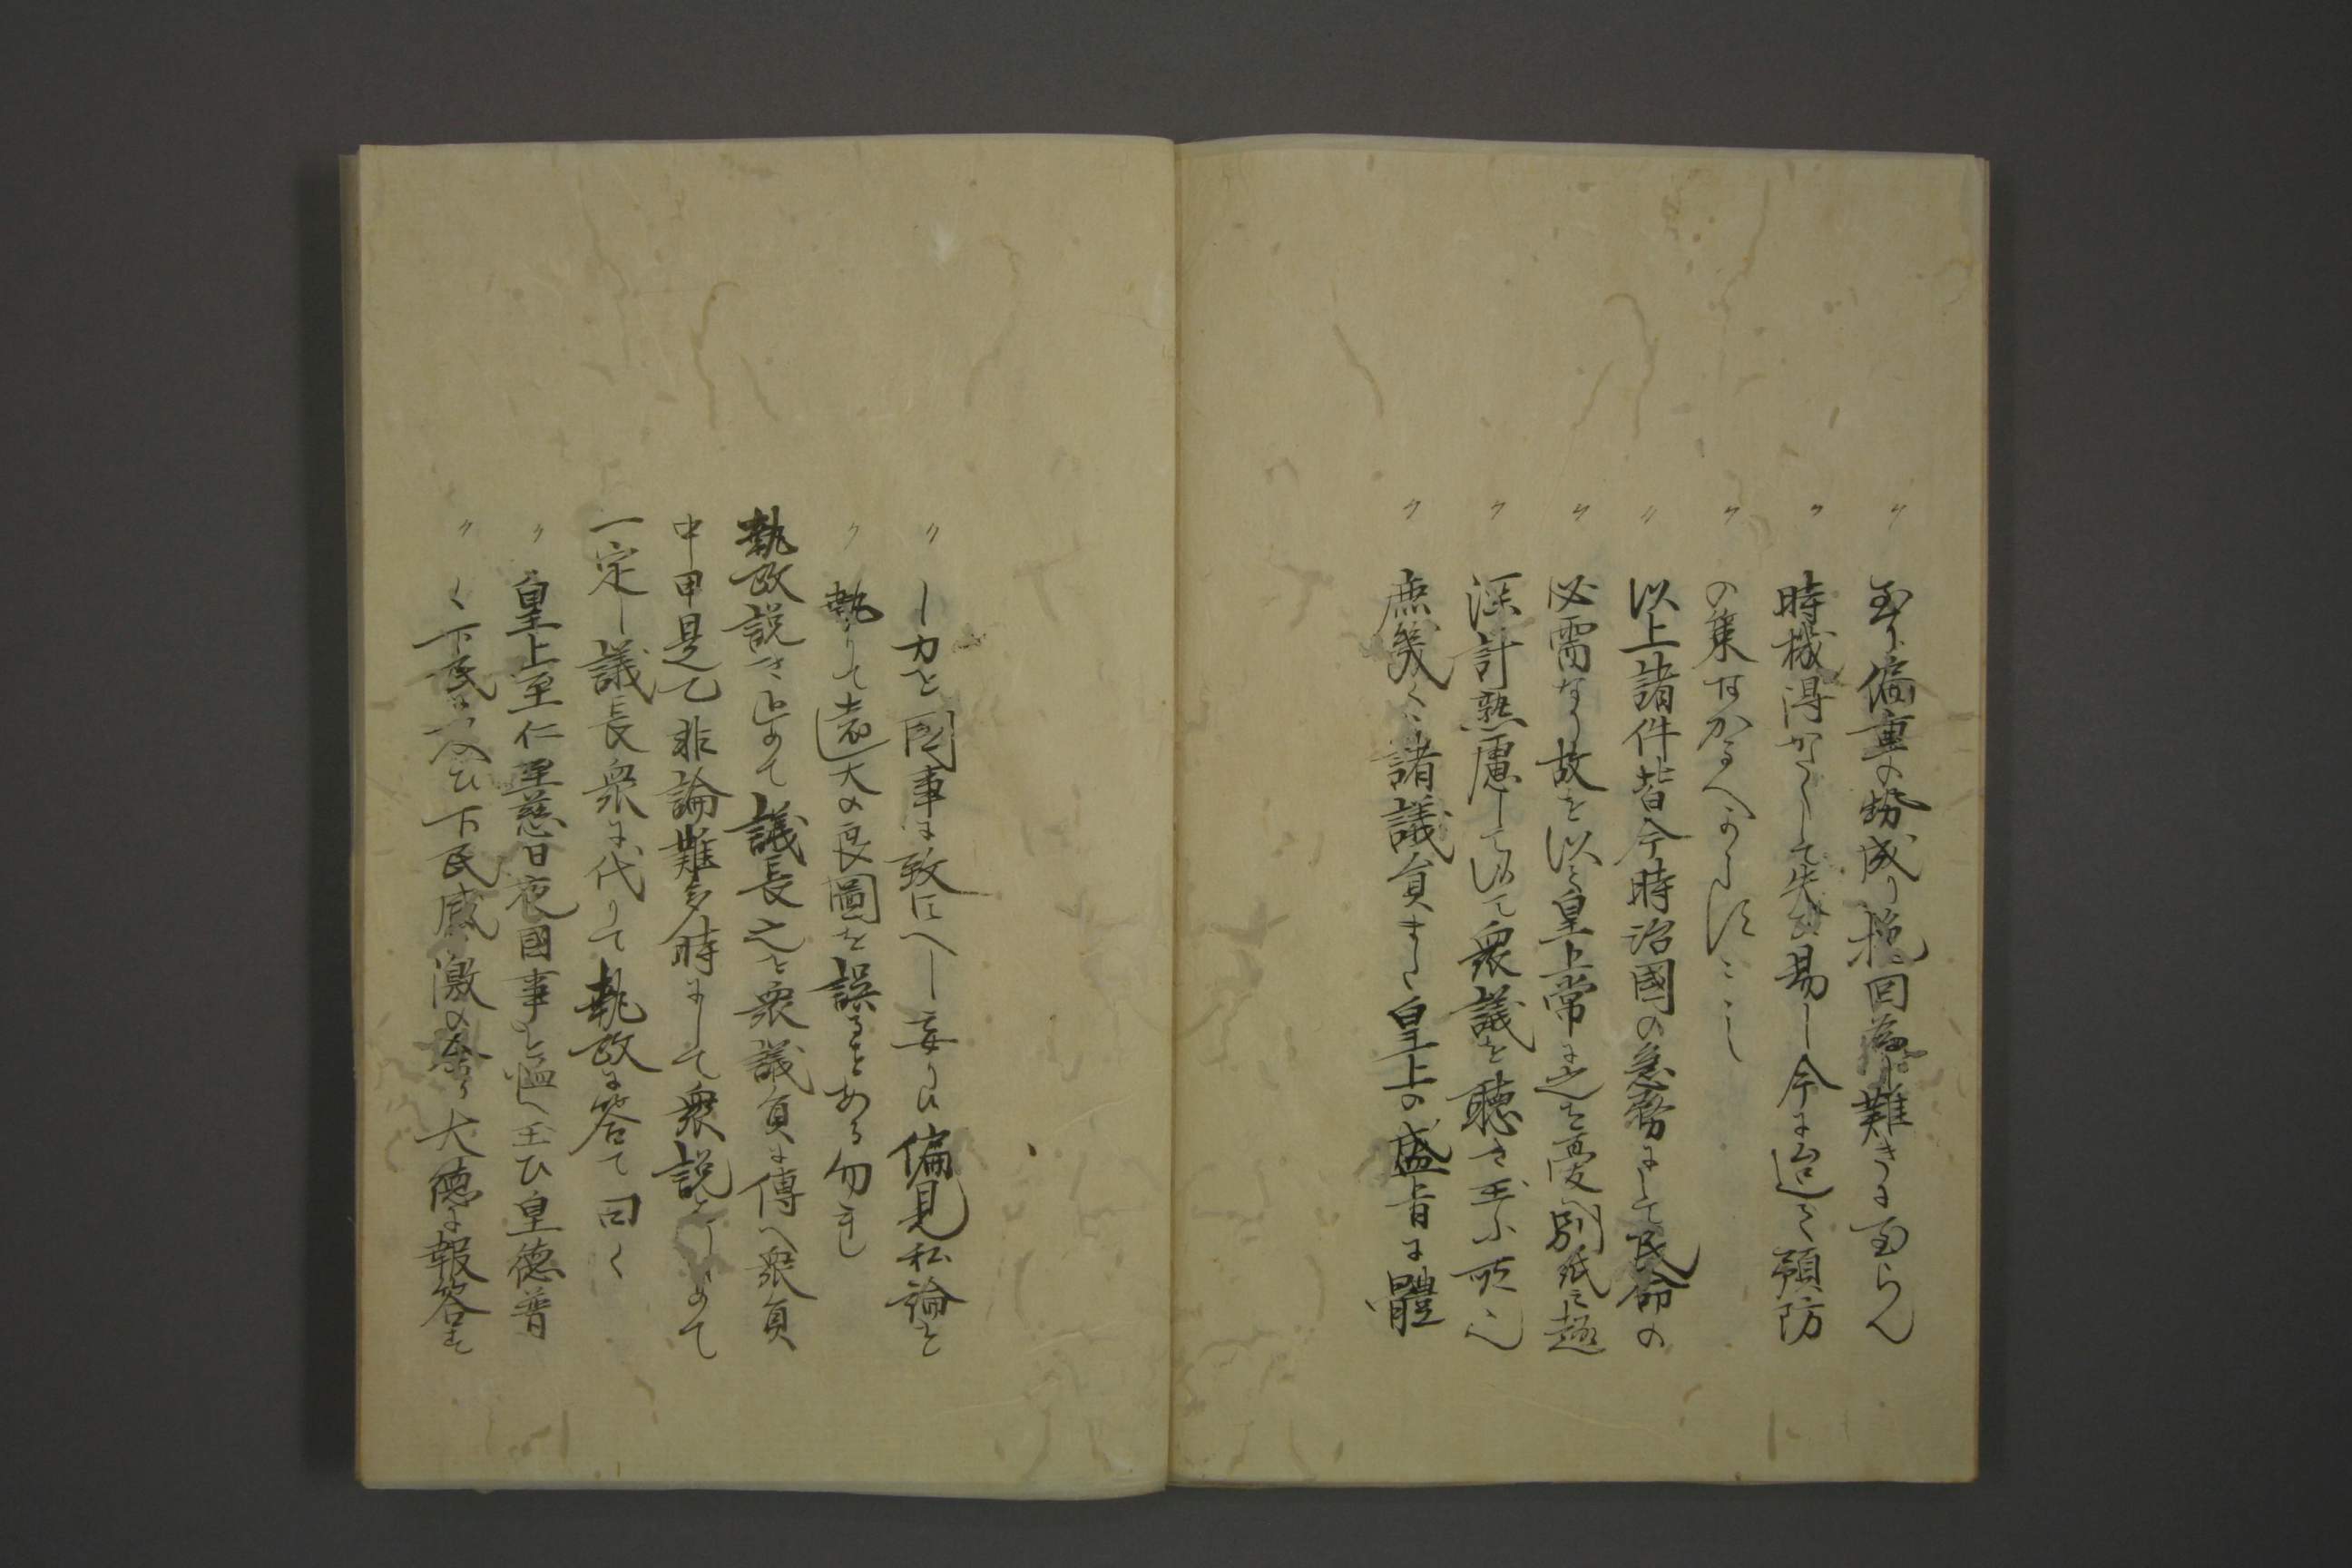 〃至り偏重の勢成り挽回為し難きに至らん
〃時機得かたくして失ひ易し今に迨て預防
〃の策なかるへからす
〃以上諸件皆今時治國の急務にして民命の
〃必需なり故を以て皇上常に之を憂へ別紙に
〃深計熟慮して以て衆議を聴き玉ふ所也
〃庶幾くハ諸議員また皇上の盛旨に體
〃し力を國事に致すへし妄りに偏見私論を
〃執りて遠大の良圖を誤ることある勿れ
執政説き終て議長之を衆議員に傳へ衆員
中甲是乙非論難多時にして衆説
一定し議長衆に代りて執政に答て曰く
〃皇上至仁至慈日夜國事を慍へ玉ひ皇徳普
〃く下民に及ひ下民感激の余り大徳に報答せ